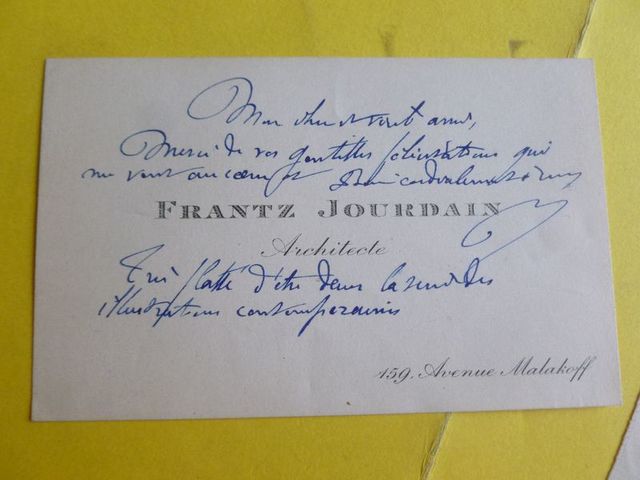 Mon cher et vieil ami,
Merci de vos gentilles félicitations qui
me vont au coeur et bien cordialement à vous
FRANTZ JOURDAIN
Architecte
Très flatté d'être dans la série des
illustrations contemporaines
159, Avenue Malakoff